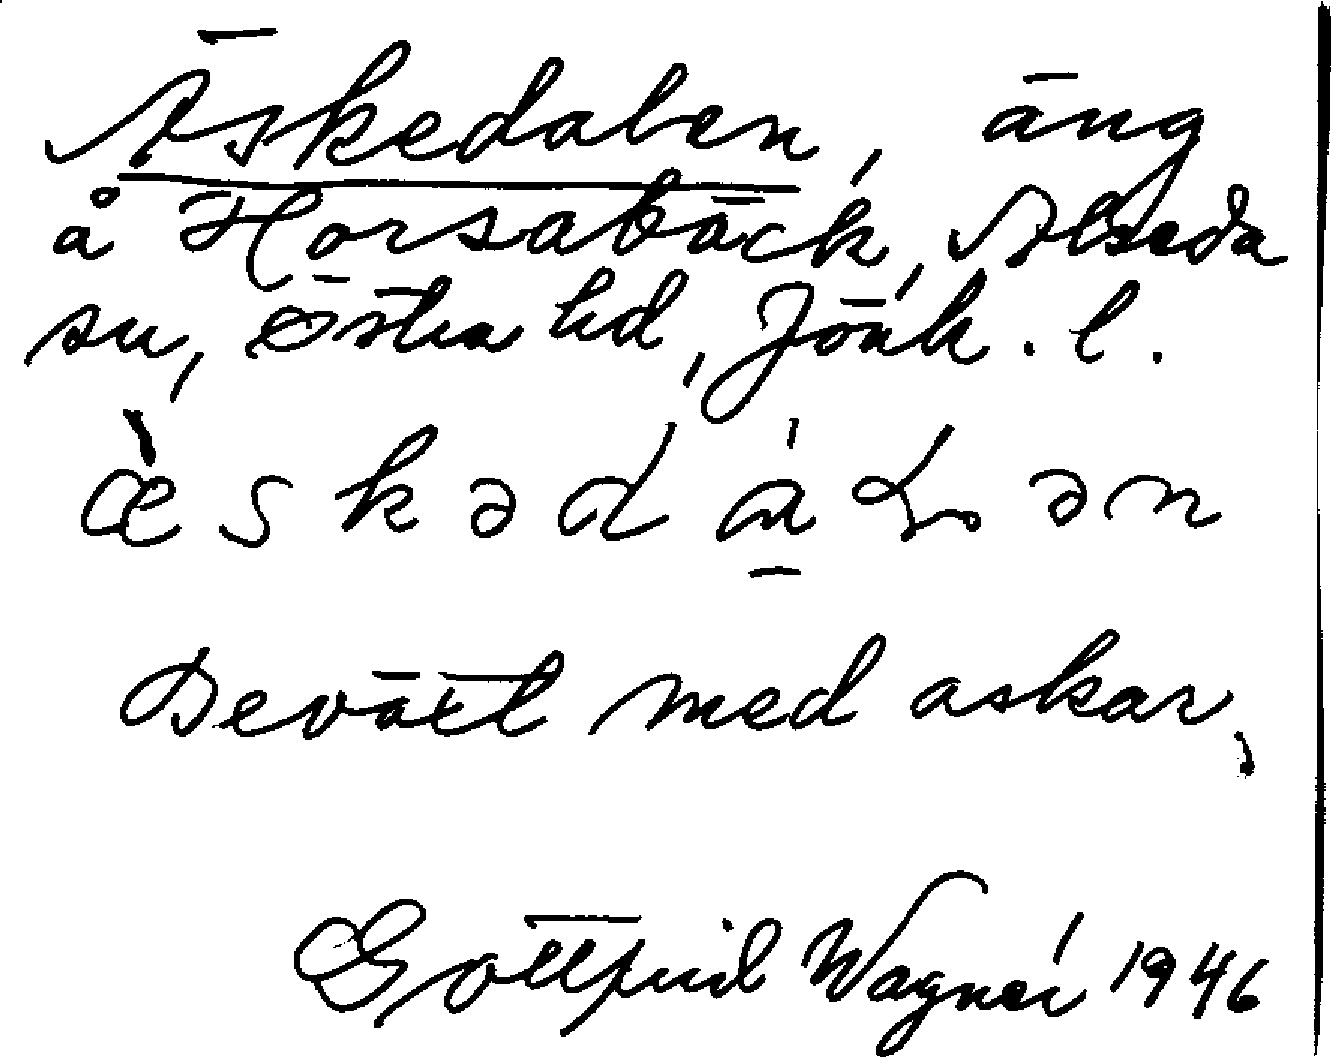 Äskedalen, äng
å Horsabäck, Alseda
sn, Östra hd, Jönk. l.
Beväxt med askar.
Gottfrid Wagnér 1946